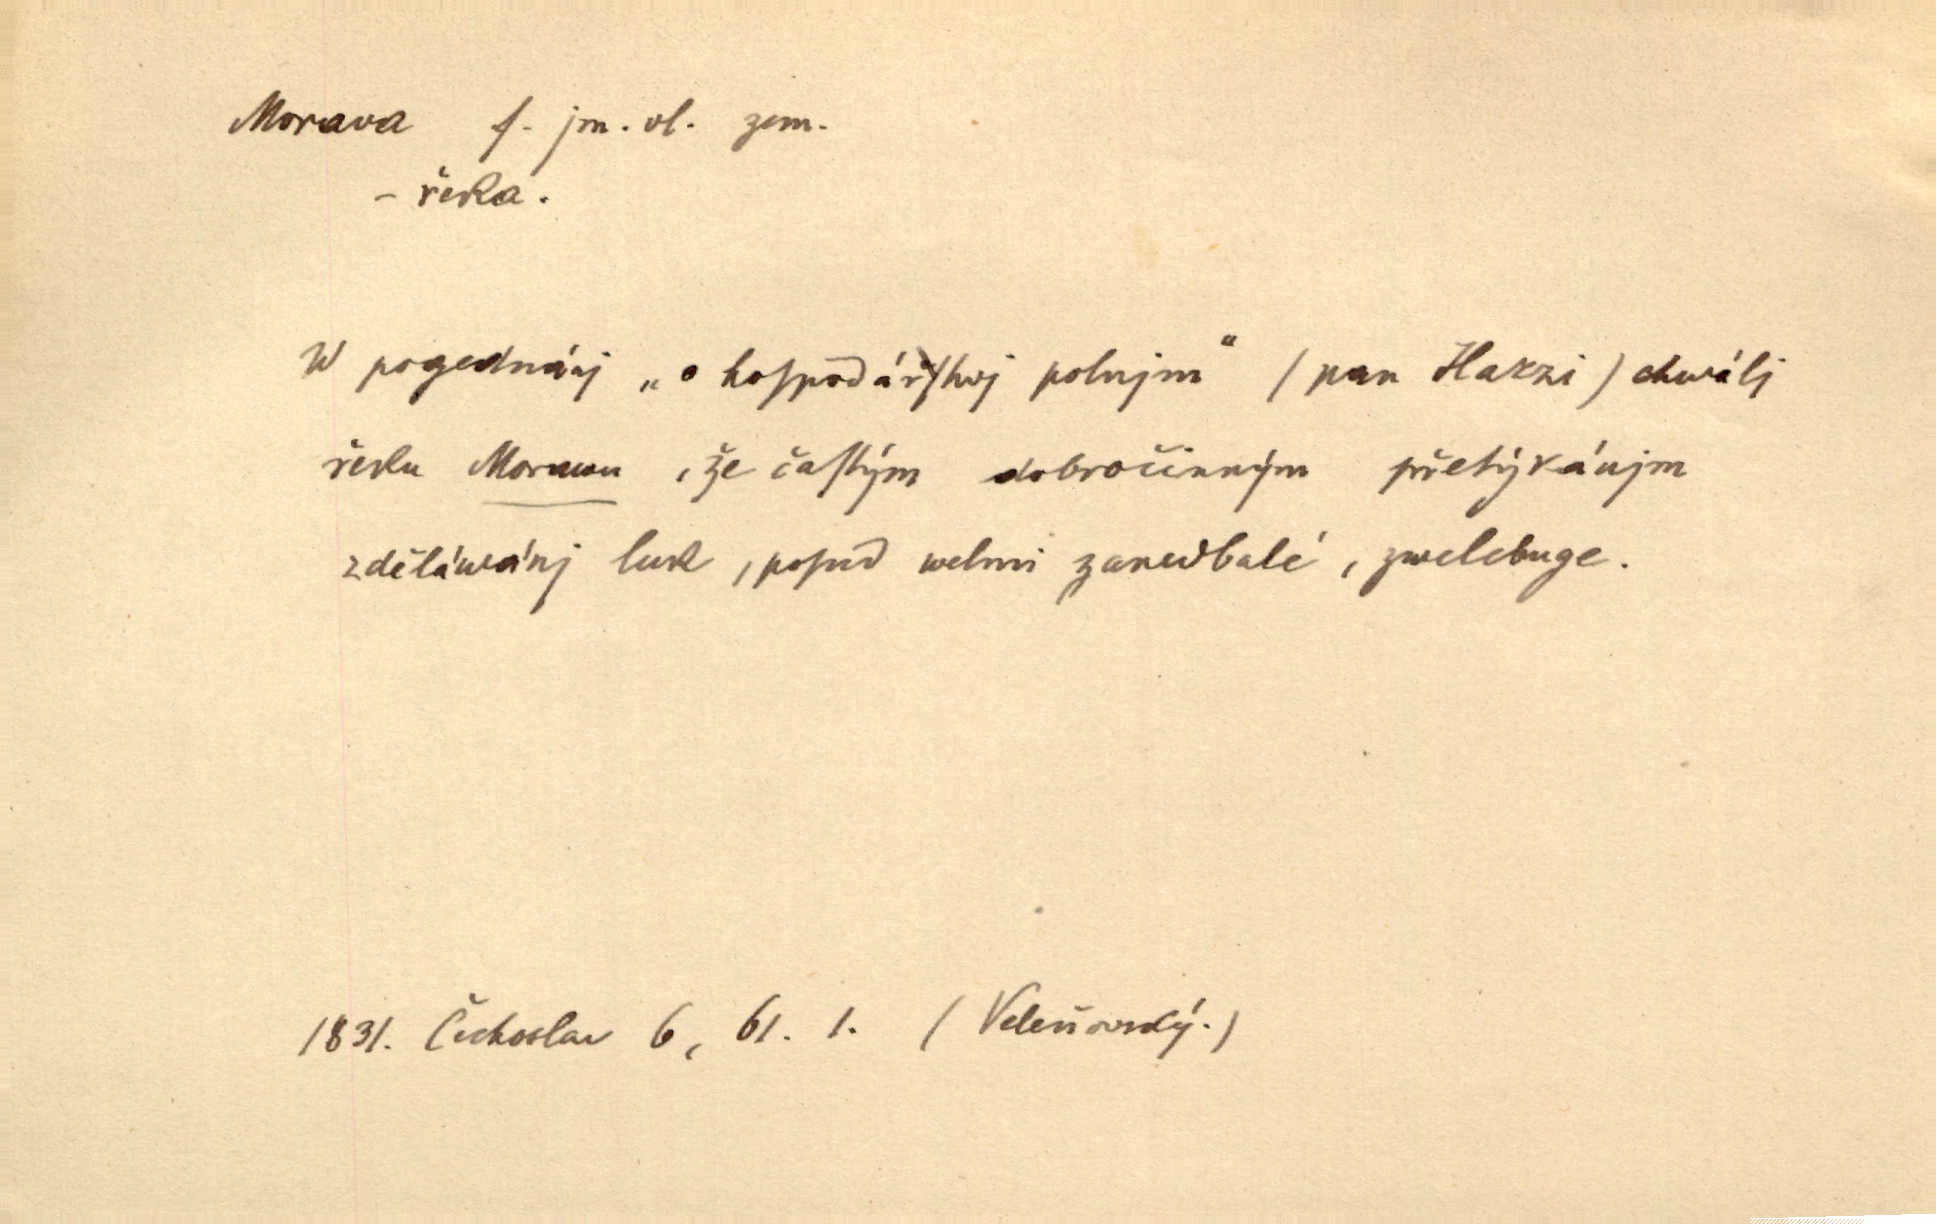 Morava f. jm. vl. zem.
– řeka.
W pogednánj „o hospodářstwj polnjm“ (pan Hazzi) chwálj
řeku Morawu, že častým dobročinným přetýkánjm
zděláwánj luk, posud welmi zanedbalé, zwelebuge.
1831. Čechoslav 6, 61. 1. (Veleňovský.)